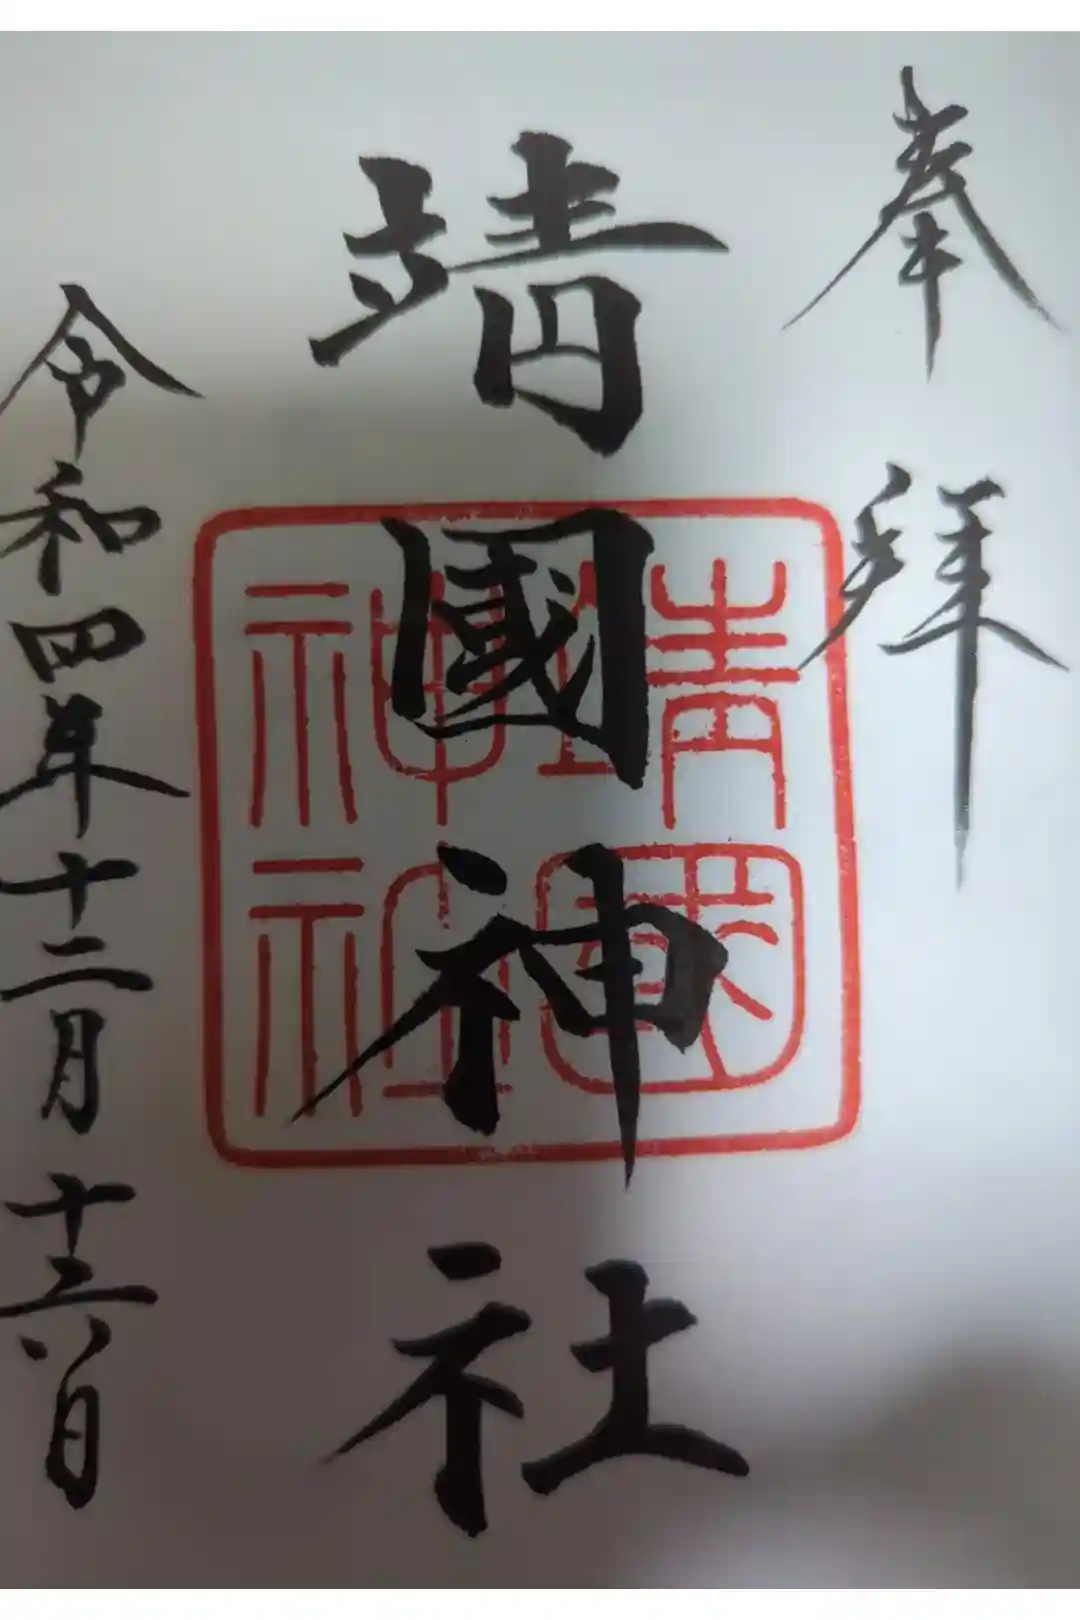 奉拜
靖國神社
靖國神社
令和四年十二月十六日